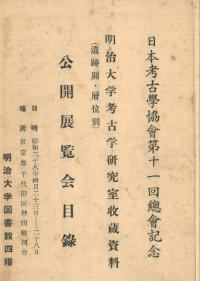 日本考古學協會第十一回總會記念
明治大学考古学研究室收蔵資料
(遺跡別・層位別)
公開展覧会目錄
日時 昭和二十八年四月二十三日—二十八日
場所 東京都千代田区神田駿河台
明治大学図書館四階